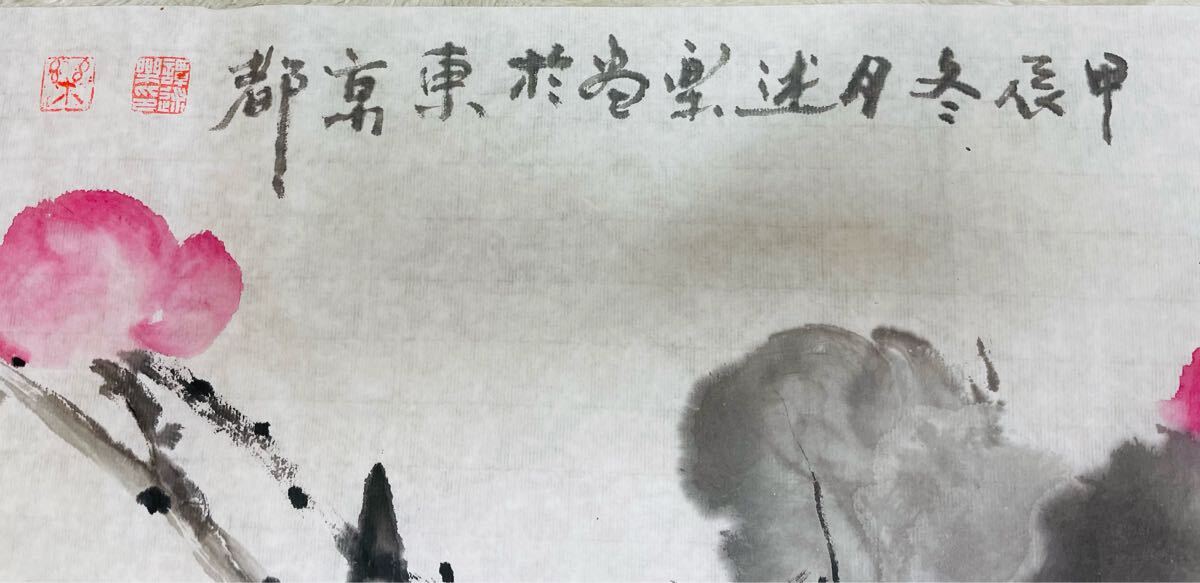 甲辰冬月述樂畫於東京都